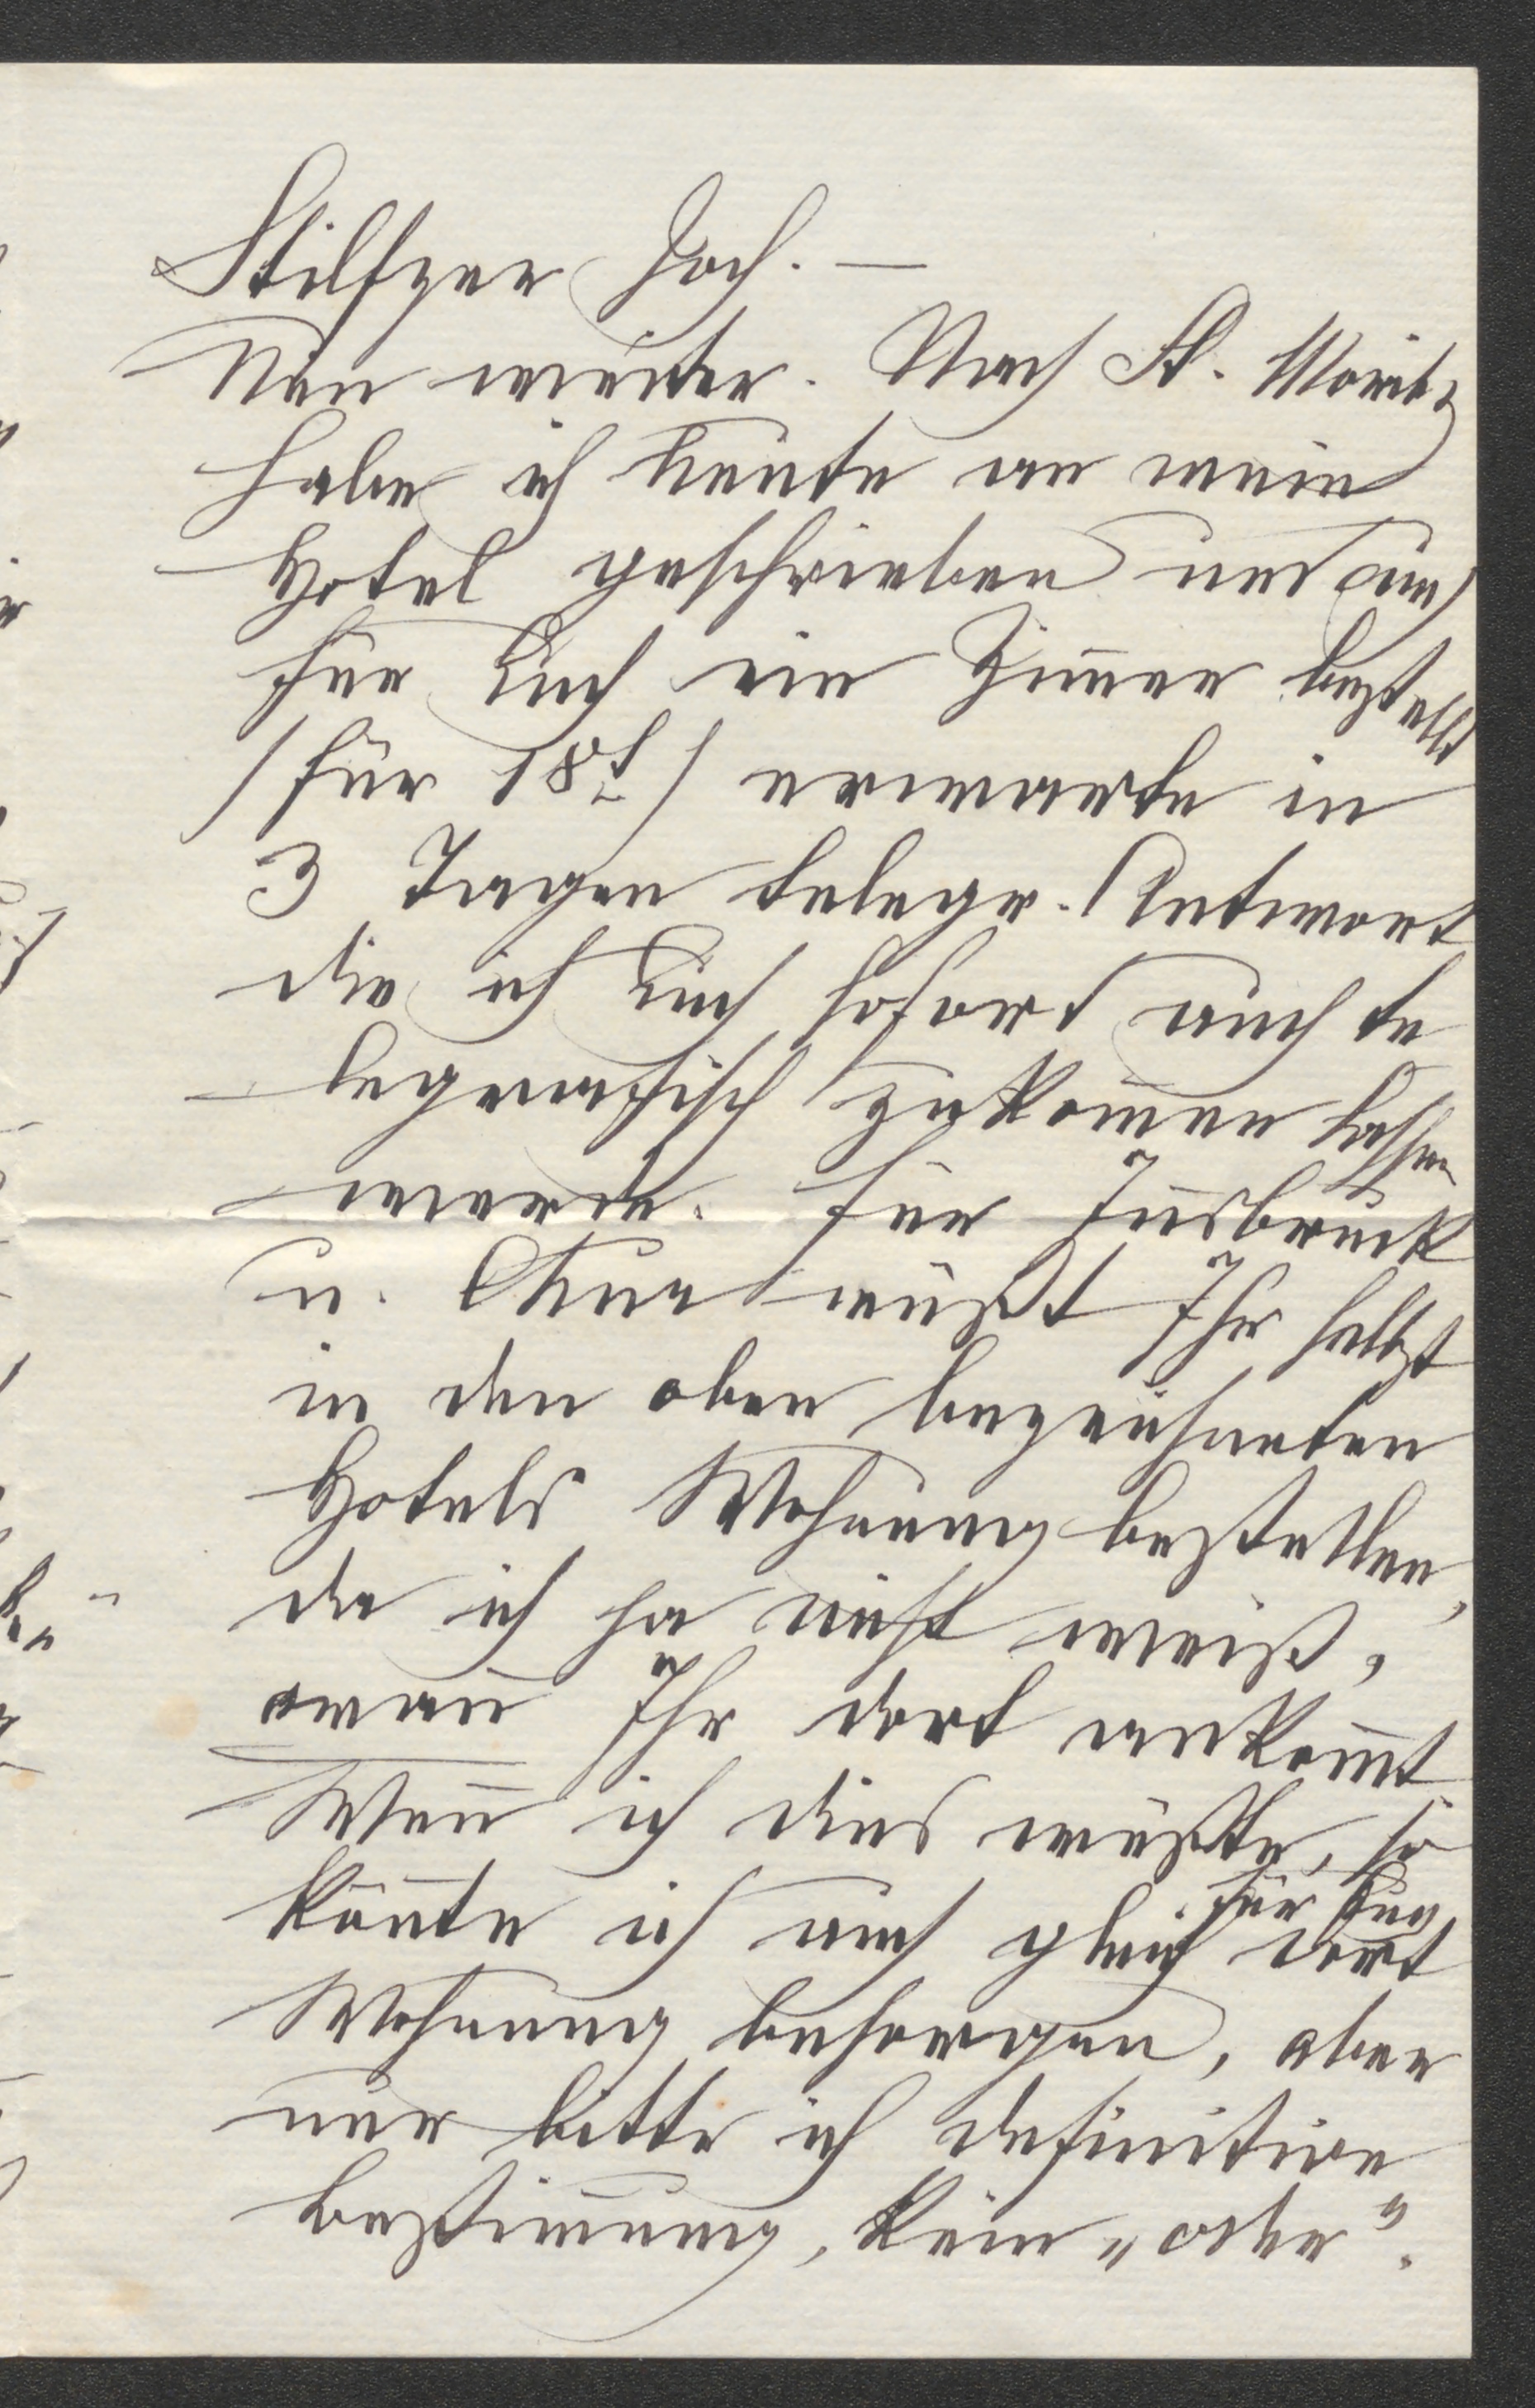 Stilfzer Joch. —
Nun weiter. Nach St. Moritz
habe ich heute an mein
Hotel geschrieben und um
für Euch ein Zimmer bestellt
/für 18t/ erwarte in
3 Tagen telegr. Antwort
die ich Euch sofort auch te
legrafisch zukom̄en lassen
werde. Für In̄sbruck
u. Chur müßt Ihr selbst
in den oben bezeichneten
Hotels Wohnung bestellen,
da ich ja nicht weiß,
wan̄ Ihr dort ankom̄t
Wen̄ ich dies wüßte, so
kön̄te ich auch gleich für Euch dort
Wohnung besorgen, aber
nur bitte ich definitive
Bestim̄ung, kein „oder“.